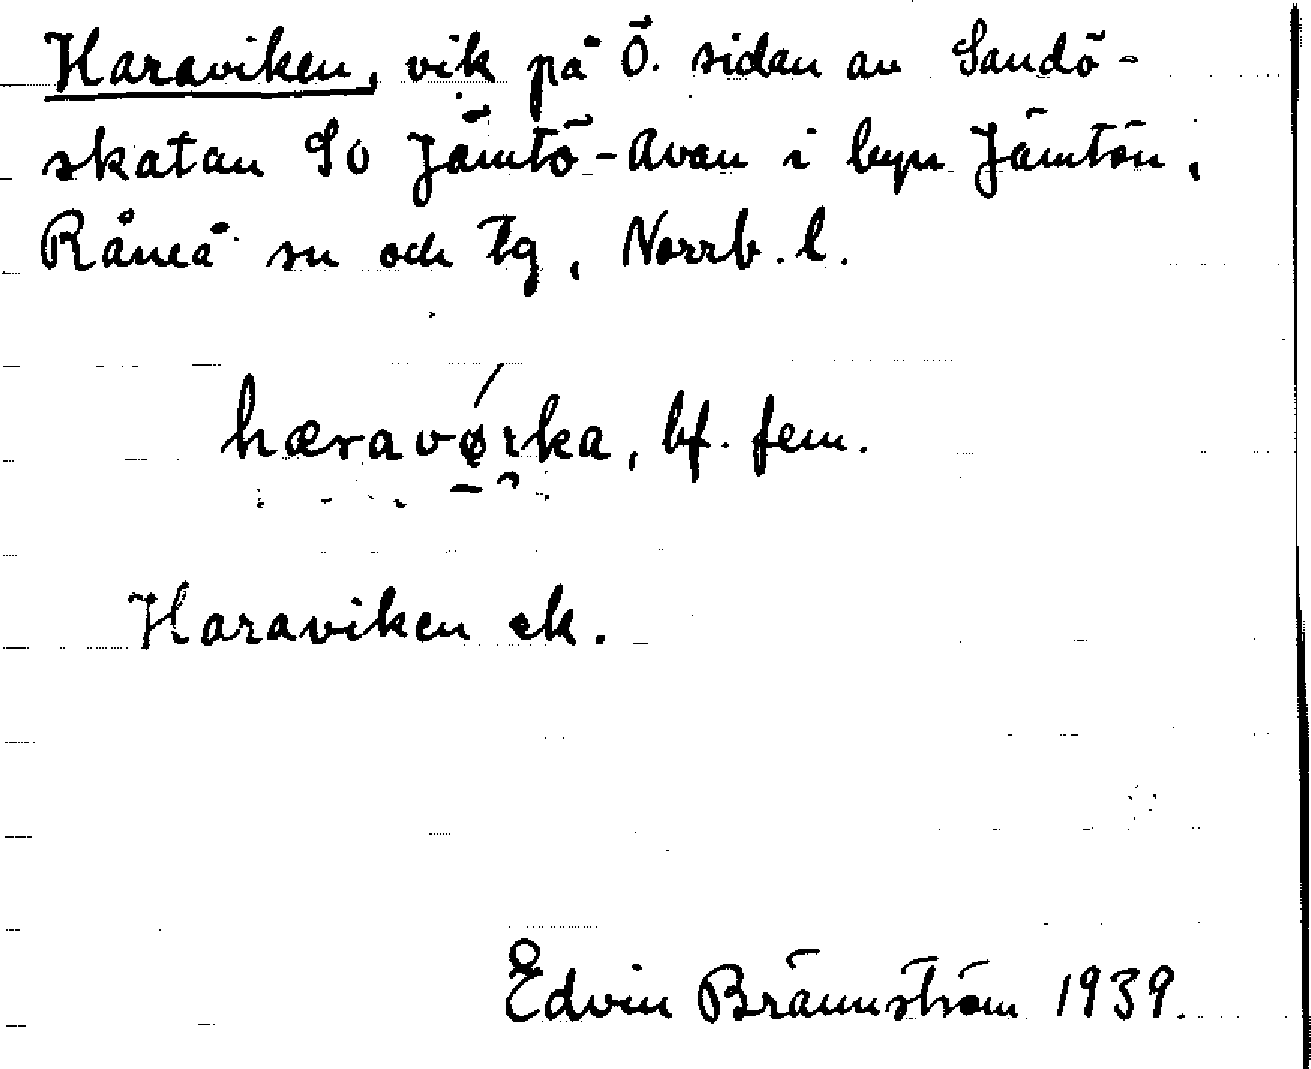 Haraviken, vik på Ö. sidan av Sandö-
skatan SO Jämtö-Avan i byn Jämtön,
Råneå sn och tg, Norrb. l.
hæravørka, bf. fem.
Haraviken ek.
Edvin Brännström 1939.